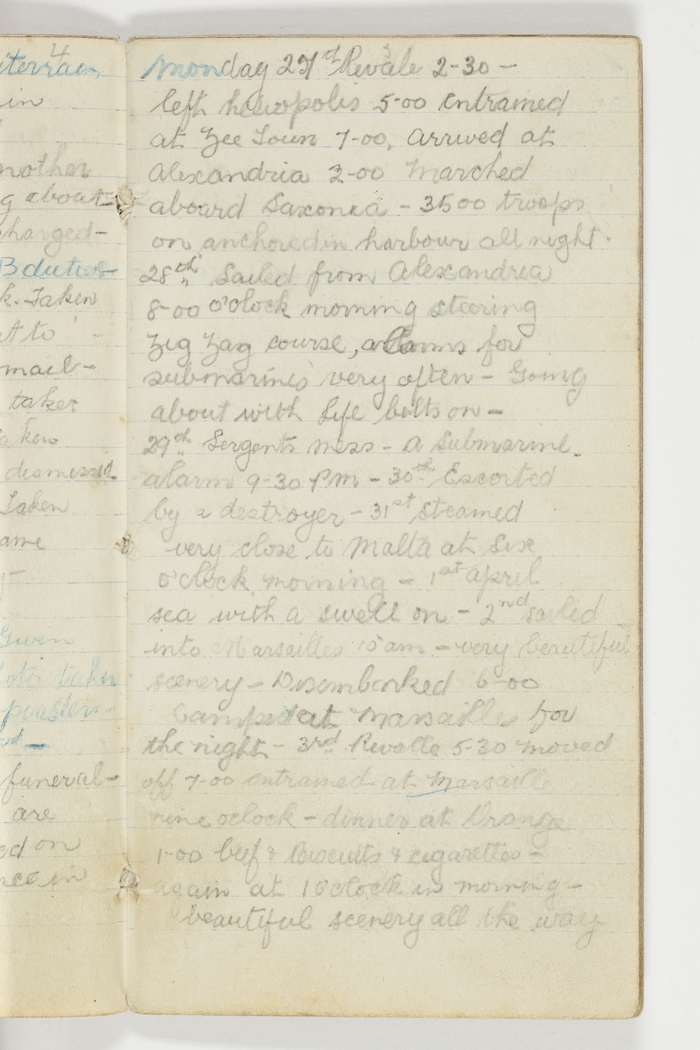 4
iterrain
in
nother
g about
charged-
B duties
k. Taken
at to -
mail-
taker
taken
dismissed
Taken
ame
Given
taken
funeral-
are
ed on
nce in
Monday 27th Revale 2-30 -
left heliopolis 5-00 Entrained
at Zee Toun 7-00, Arrived at
Alexandria 2-00 Marched
aboard Saxonia - 3500 troops
on anchored in harbour all night.
28th Sailed from Alexandria
8-00 o'olock morning steering
Zig Zag course, alarms for
submarines very often - Going
about with life belts on -
29th Sergents mess - a Submarine
alarm 9-30 Pm - 30th Escorted
by a destroyer - 31st Steamed
very close to Malta at Six
o'clock morning - 1st April
sea with a swell on - 2nd sailed
into Marsailles 10 am - very beautiful
scenery - Disembarked 6-00
Camped at Marsaille for
the night - 3rd Revalle 5-30 moved
off 7-00 entrained at Marsaille
nine oclock - dinner at Orange
1-00 beef & Biscuits & cigarettes -
again at 1 Oclock in morning -
beautiful scenery all the way